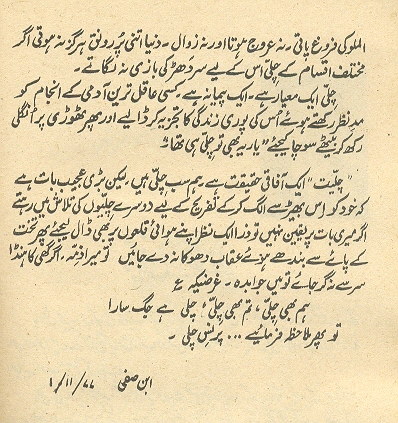 الملوکی فروغ پاتی۔ نہ عروج ہوتا اور نہ زوال۔ دنیا اتنی پُر رونق ہرگز نہ ہوتی اگر
مختلف اقسام کے چلّی اس کے لیے سر دھڑ کی بازی نہ لگاتے۔
چلّی ایک معیار ہے۔ ایک پیمانہ ہے۔ کسی عاقل ترین آدمی کے انجام کو
مدِ نظر رکھتے ہوئے اُس کی پوری زندگی کا تجزیہ کر ڈالیے اور پھر ٹھوڑی پر اُنگلی
رکھ کر بیٹھے سوچا کیجیے "یار یہ بھی تو چلّی ہی تھا"
"چلّیت" ایک آفاقی حقیقت ہے۔ ہم سب چلّی ہیں۔ لیکن بڑی عجیب بات ہے
کہ خود کو اس بھیڑ سے الگ کر کے تفریح کے لیے دوسرے چلّیوں کی تلاش میں رہتے
اگر میری بات پر یقین نہیں تو ذرا ایک نظر اپنے ہوائی قلعوں پر بھی ڈال لیجئے پھر تخت
کے پائے سے بندھے ہوئے عقاب دھوکا نہ دے جائیں تو میرا ذمّہ۔ اگر گھی کا ہنڈا
سر سے نہ گر جائے تو میں جوابدہ۔ غرضیکہ ؏
ہم بھی چلّی، تم بھی چلّی، چلّی ہے جگ سارا
تو پھر ملاحظہ فرمائیے ... پرنس چلّی۔
ابن صفی ۱/۱۱/۷۷